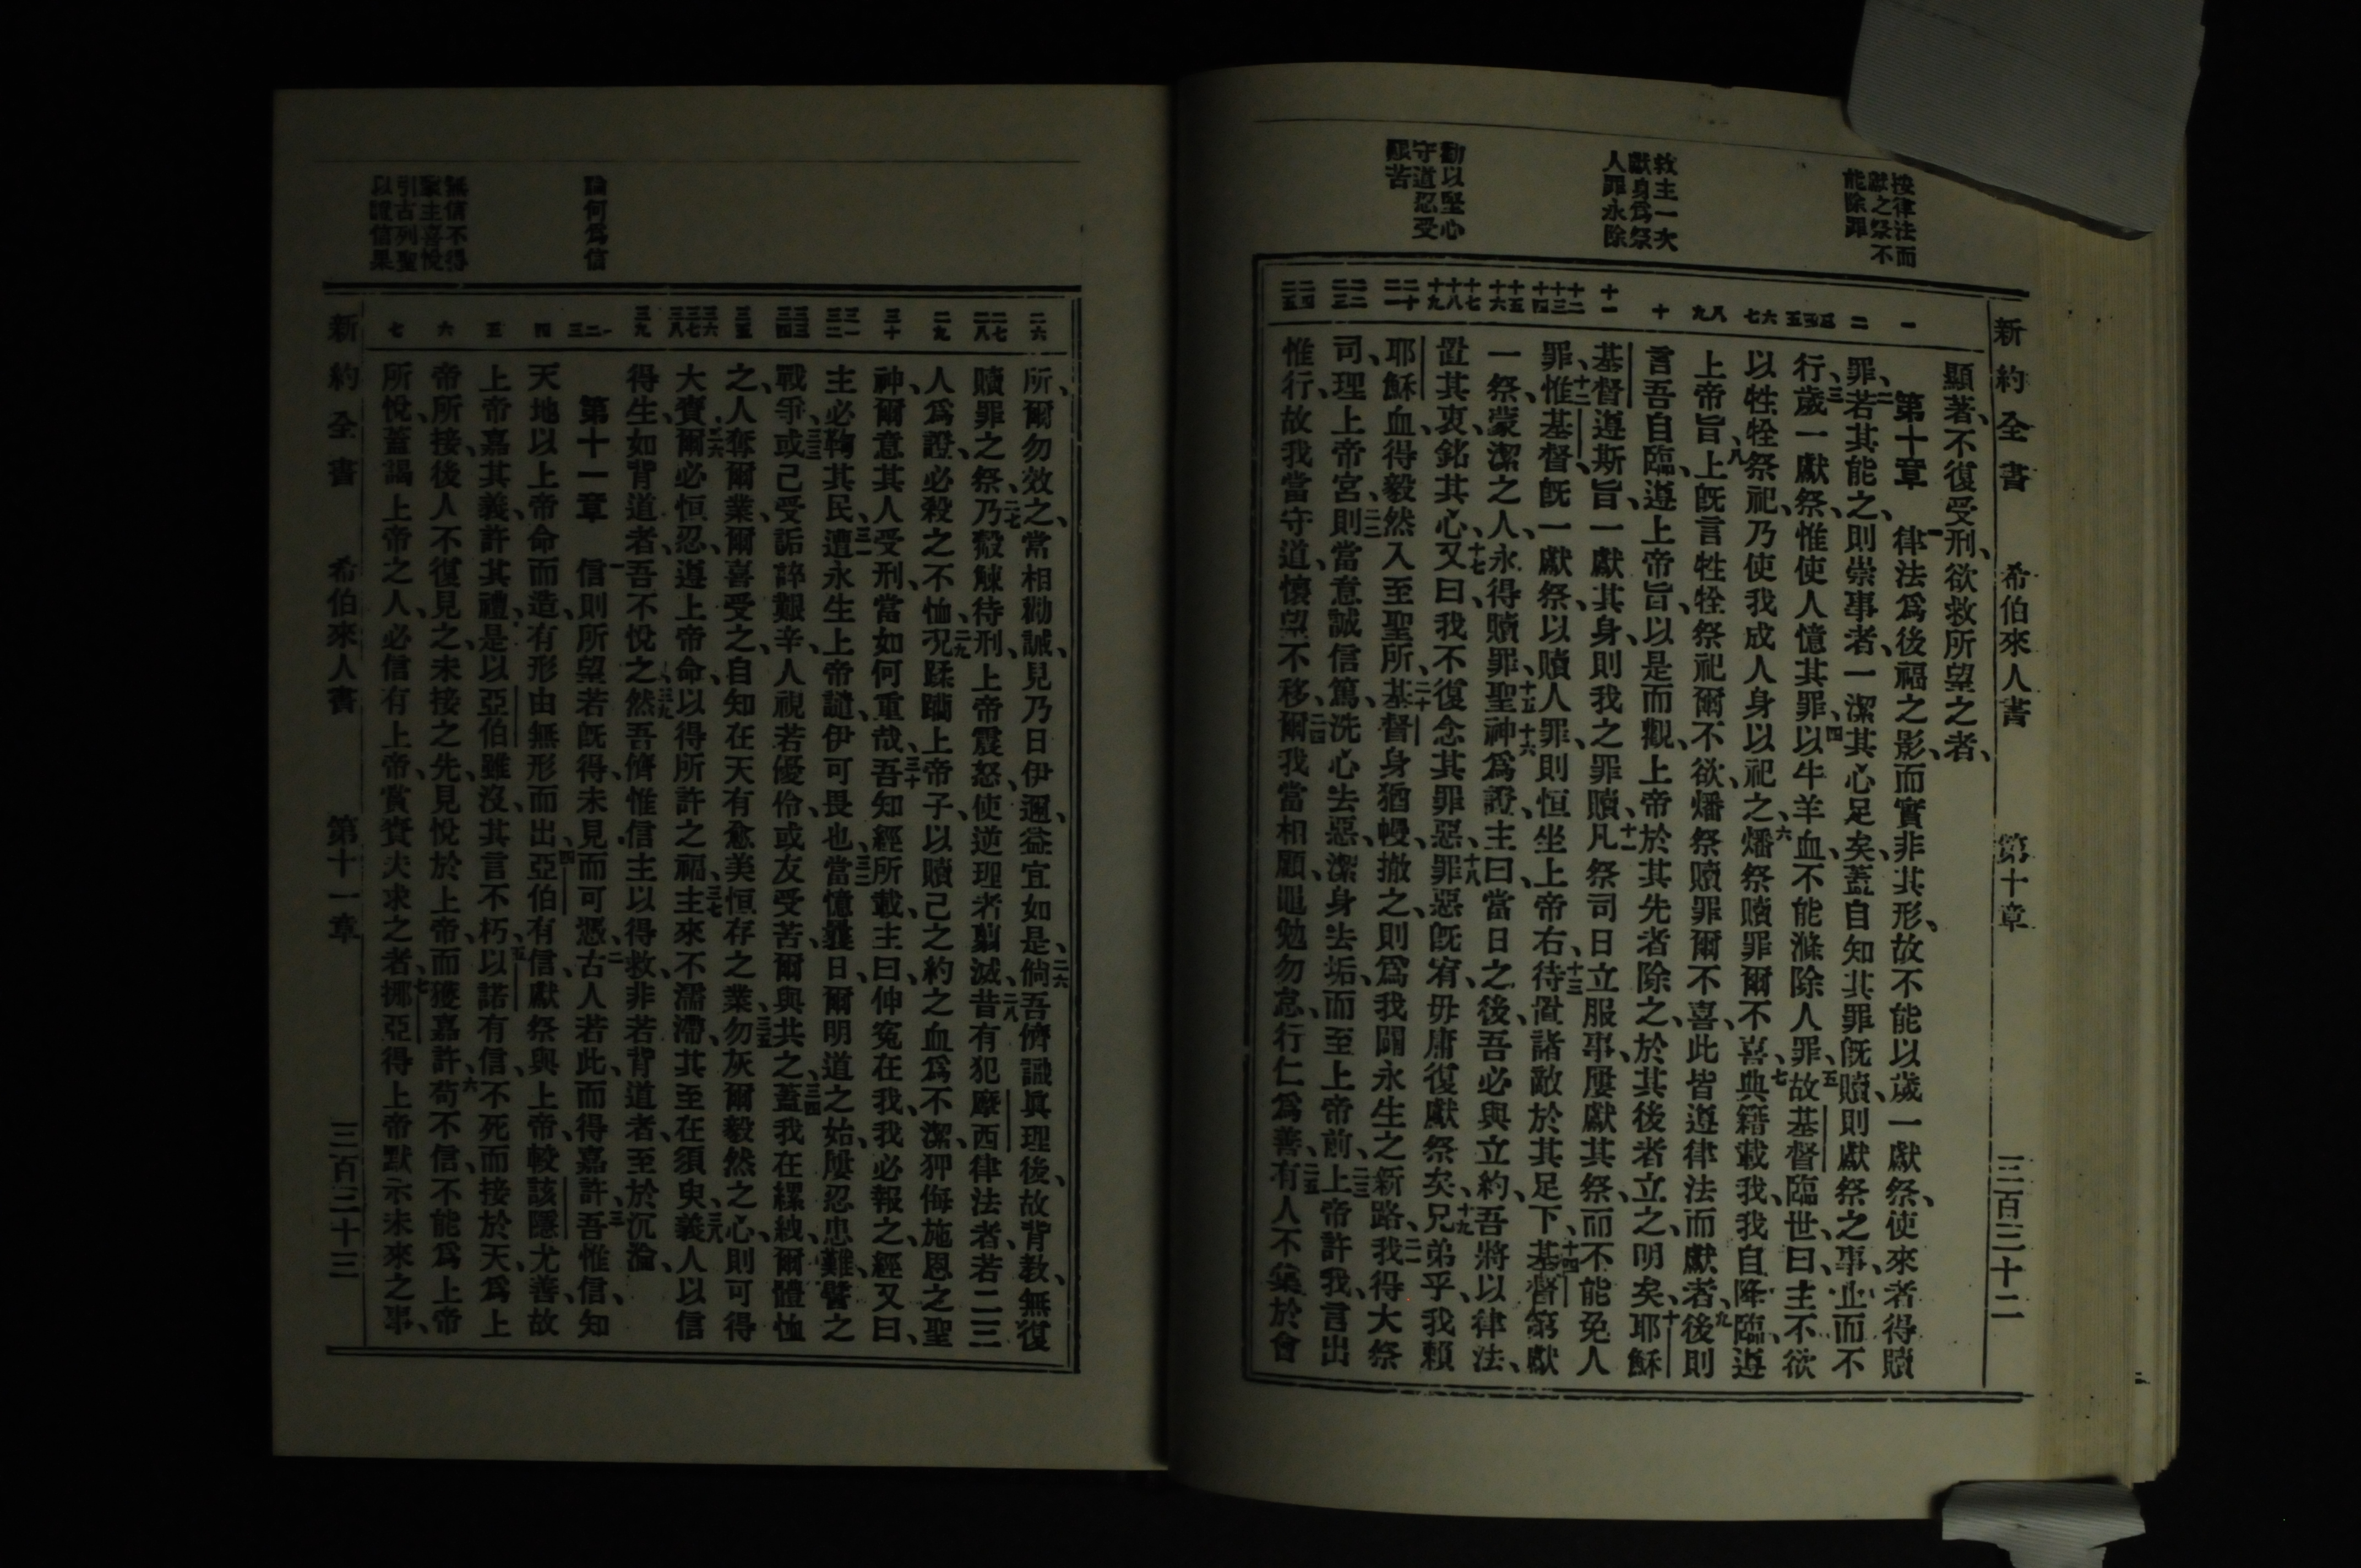 新約全書 希伯來人書 第十章 三百三十二
按律法而
獻之祭不
能除罪
救主一次
獻身爲祭
人罪永除
勸以堅心
守道忍受
艱苦
一
二
三四五
六七
八九
十
十一
十二十三十四
十五十六
十七十八十九
二十二一
二二二三
二四二五
顯著、不復受刑、欲救所望之者、
第十章 一律法爲後福之影、而實非其形、故不能以歲一獻祭、使來者得贖
罪、二若其能之、則崇事者、一潔其心足矣、蓋自知其罪旣贖、則獻祭之事、止而不
行、三歲一獻祭、惟使人憶其罪、四以牛羊血、不能滌除人罪、五故基督臨世曰、主不欲
以牲牷祭祀、乃使我成人身以祀之、六燔祭贖罪爾不喜、七典籍載我、我自降臨、遵
上帝旨、八上旣言牲牷祭祀爾不欲、燔祭贖罪爾不喜、此皆遵律法而獻者、九後則
言吾自臨、遵上帝旨、以是而觀、上帝於其先者除之、於其後者立之、明矣、十耶穌
基督遵斯旨、一獻其身、則我之罪贖、十一凡祭司日立服事、屢獻其祭、而不能免人
罪、十二惟基督、旣一獻祭、以贖人罪、則恒坐上帝右、十三待置諸敵於其足下、十四基督第獻
一祭、蒙潔之人、永得贖罪、十五聖神爲證、十六主曰、當日之後、吾必與立約、吾將以律法、
置其衷、銘其心、十七又曰、我不復念其罪惡、十八罪惡旣宥、毋庸復獻祭矣、十九兄弟乎、我賴
耶穌血、得毅然入至聖所、二十基督身猶幔、撤之、則爲我闢永生之新路、二一我得大祭
司、理上帝宮、二二則當意誠信篤、洗心去惡、潔身去垢、而至上帝前、二三上帝許我、言出
惟行、故我當守道、懷望不移、二四爾我當相顧、黽勉勿怠、行仁爲善、二五有人不集於會
論何爲信
無信不得
蒙主喜悅
引古列聖
以證信果
二六
二七二八
二九
三十
三一三二
三三三四
三五
三六三七三八
三九
一二三
四
五
六
七
所、爾勿效之、當相勸誡、見乃日伊邇、益宜如是、二六倘吾儕識眞理後、故背敎、無復
贖罪之祭、二七乃觳觫待刑、上帝震怒、使逆理者翦滅、二八昔有犯摩西律法者、若二三
人爲證、必殺之不恤、二九况蹂躪上帝子、以贖己之約之血爲不潔、狎侮施恩之聖
神、爾意其人受刑、當如何重哉、三十吾知經所載、主曰、伸冤在我、我必報之、經又曰、
主必鞫其民、三一遭永生上帝譴、伊可畏也、三二當憶曩日、爾明道之始、屢忍患難、譬之
戰爭、三三或己受詬誶艱辛、人視若優伶、或友受苦、爾與共之、三四蓋我在縲絏、爾體恤
之、人奪爾業、爾喜受之、自知在天有愈美恒存之業、三五勿灰爾毅然之心、則可得
大賚、三六爾必恒忍、遵上帝命、以得所許之福、三七主來不濡滯、其至在須臾、三八義人以信
得生、如背道者、吾不悅之、三九然吾儕惟信主以得救、非若背道者、至於沉淪、
第十一章 一信則所望若旣得、未見而可憑、二古人若此、而得嘉許、三吾惟信、知
天地以上帝命而造、有形由無形而出、四亞伯有信、獻祭與上帝、較該隱尤善、故
上帝嘉其義、許其禮、是以亞伯雖沒、其言不朽、五以諾有信、不死而接於天、爲上
帝所接、後人不復見之、未接之先、見悅於上帝、而獲嘉許、六苟不信、不能爲上帝
所悅、蓋謁上帝之人、必信有上帝、賞賚夫求之者、七挪亞得上帝默示未來之事、
新約全書 希伯來人書 第十一章 三百三十三